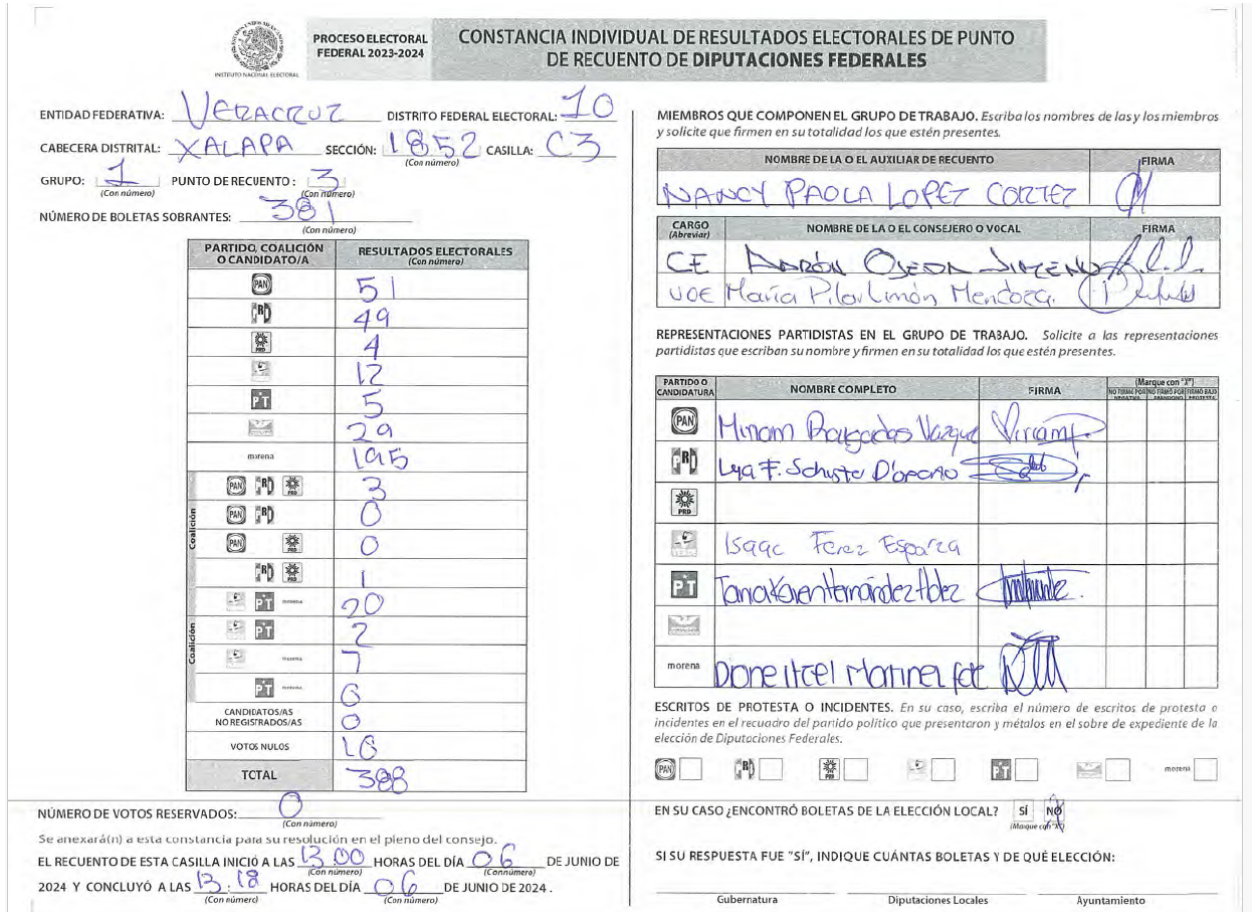 INSTITUTO NACIONAL ELECTORAL
PROCESO ELECTORAL
FEDERAL 2023-2024
CONSTANCIA INDIVIDUAL DE RESULTADOS ELECTORALES DE PUNTO
DE RECUENTO DE DIPUTACIONES FEDERALES
ENTIDAD FEDERATIVA: VERACRUZ DISTRITO FEDERAL ELECTORAL: 10
CABECERA DISTRITAL: XALAPA SECCIÓN: 1852 CASILLA: C3
(Con número)
GRUPO: 1 PUNTO DE RECUENTO : 3
(Con número) (Con número)
NÚMERO DE BOLETAS SOBRANTES: 381
(Con número)
PARTIDO, COALICIÓN
O CANDIDATO/A
RESULTADOS ELECTORALES
(Con número)
PAN 51
PRI 49
PRD 4
12
PT 5
29
morena 195
Coalición
PAN PRI PRD 3
PAN PRI 0
PAN PRD 0
PRI PRD 1
Coalición
PT morena 20
PT 2
morena 7
PT morena 6
CANDIDATOS/AS
NO REGISTRADOS/AS 0
VOTOS NULOS 16
TOTAL 388
NÚMERO DE VOTOS RESERVADOS: 0
(Con número)
Se anexará(n) a esta constancia para su resolución en el pleno del consejo.
EL RECUENTO DE ESTA CASILLA INICIÓ A LAS 13:00 HORAS DEL DÍA 06 DE JUNIO DE
(Con número) (Con número)
2024 Y CONCLUYÓ A LAS 13:18 HORAS DEL DÍA 06 DE JUNIO DE 2024 .
(Con número) (Con número)
MIEMBROS QUE COMPONEN EL GRUPO DE TRABAJO. Escriba los nombres de las y los miembros
y solicite que firmen en su totalidad los que estén presentes.
NOMBRE DE LA O EL AUXILIAR DE RECUENTO FIRMA
NANCY PAOLA LOPEZ CORTEZ
CARGO
(Abreviar)
NOMBRE DE LA O EL CONSEJERO O VOCAL FIRMA
CE AARÓN OJEDA JIMENO
VOE María Pilar Limón Mendoza.
REPRESENTACIONES PARTIDISTAS EN EL GRUPO DE TRABAJO. Solicite a las representaciones
partidistas que escriban su nombre y firmen en su totalidad los que estén presentes.
PARTIDO O
CANDIDATURA
NOMBRE COMPLETO FIRMA (Marque con "X")
NO FIRMÓ POR NEGATIVA NO FIRMÓ POR ABANDONO FIRMÓ BAJO PROTESTA
PAN Miriam
PRI Lya F. Schuster
PRD
Isaac Ferez Esparza
PT Hernández Hdez
morena
ESCRITOS DE PROTESTA O INCIDENTES. En su caso, escriba el número de escritos de protesta o
incidentes en el recuadro del partido político que presentaron y métalos en el sobre de expediente de la
elección de Diputaciones Federales.
PAN PRI PRD PT morena
EN SU CASO ¿ENCONTRÓ BOLETAS DE LA ELECCIÓN LOCAL? SÍ NO
(Marque con "X")
SI SU RESPUESTA FUE "SÍ", INDIQUE CUÁNTAS BOLETAS Y DE QUÉ ELECCIÓN:
Gubernatura Diputaciones Locales Ayuntamiento